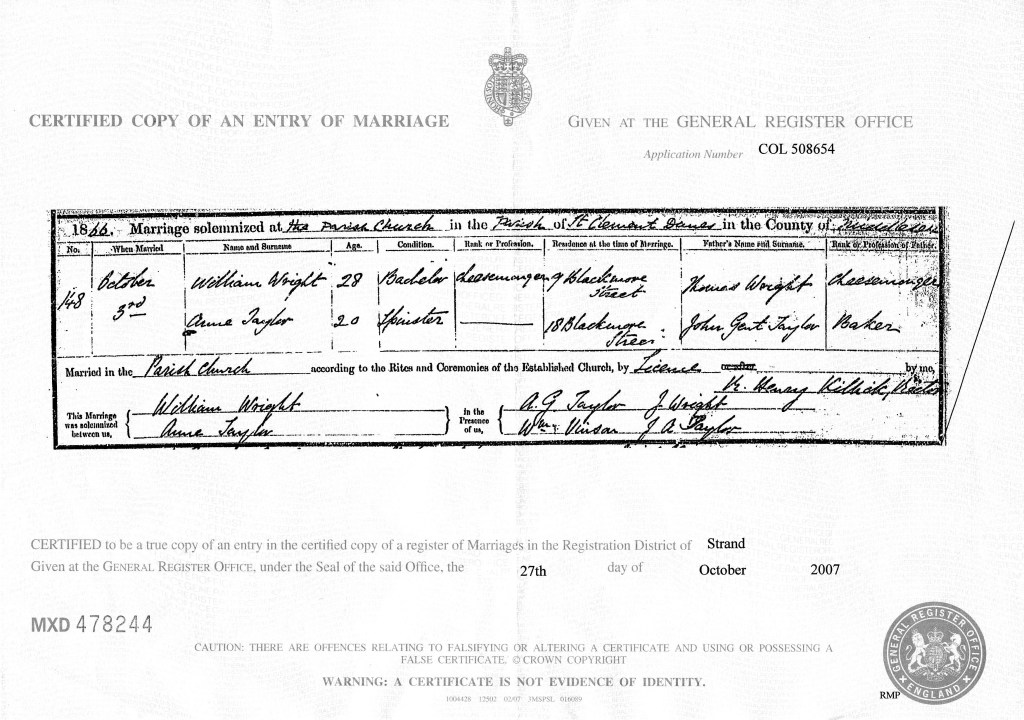 CERTIFIED COPY OF AN ENTRY OF MARRIAGE
GIVEN AT THE GENERAL REGISTER OFFICE
Application Number COL 508654
1866. Marriage solemnized at the Parish Church in the Parish of St Clement Danes in the County of Middlesex
No. When Married Name and Surname Age. Condition. Rank or Profession. Residence at the time of Marriage. Father's Name and Surname. Rank or Profession of Father.
148 October 3rd William Wright 28 Bachelor Cheesemonger 9 Blackmore Street Thomas Wright Cheesemonger
Anne Taylor 20 Spinster 18 Blackmore Street John Gent Taylor Baker
Married in the Parish Church according to the Rites and Ceremonies of the Established Church, by Licence or after by me,
Henry Killick, Rector
This Marriage was solemnized between us, William Wright In the Presence of us, A. G Taylor J. Wright
Anne Taylor Wm Vinson J A Taylor
CERTIFIED to be a true copy of an entry in the certified copy of a register of Marriages in the Registration District of Strand
Given at the GENERAL REGISTER OFFICE, under the Seal of the said Office, the 27th day of October 2007
MXD 478244
CAUTION: THERE ARE OFFENCES RELATING TO FALSIFYING OR ALTERING A CERTIFICATE AND USING OR POSSESSING A
FALSE CERTIFICATE. © CROWN COPYRIGHT
WARNING: A CERTIFICATE IS NOT EVIDENCE OF IDENTITY.
1004428 12502 02/07 3MSPSL 016089
GENERAL REGISTER OFFICE
ENGLAND
RMP